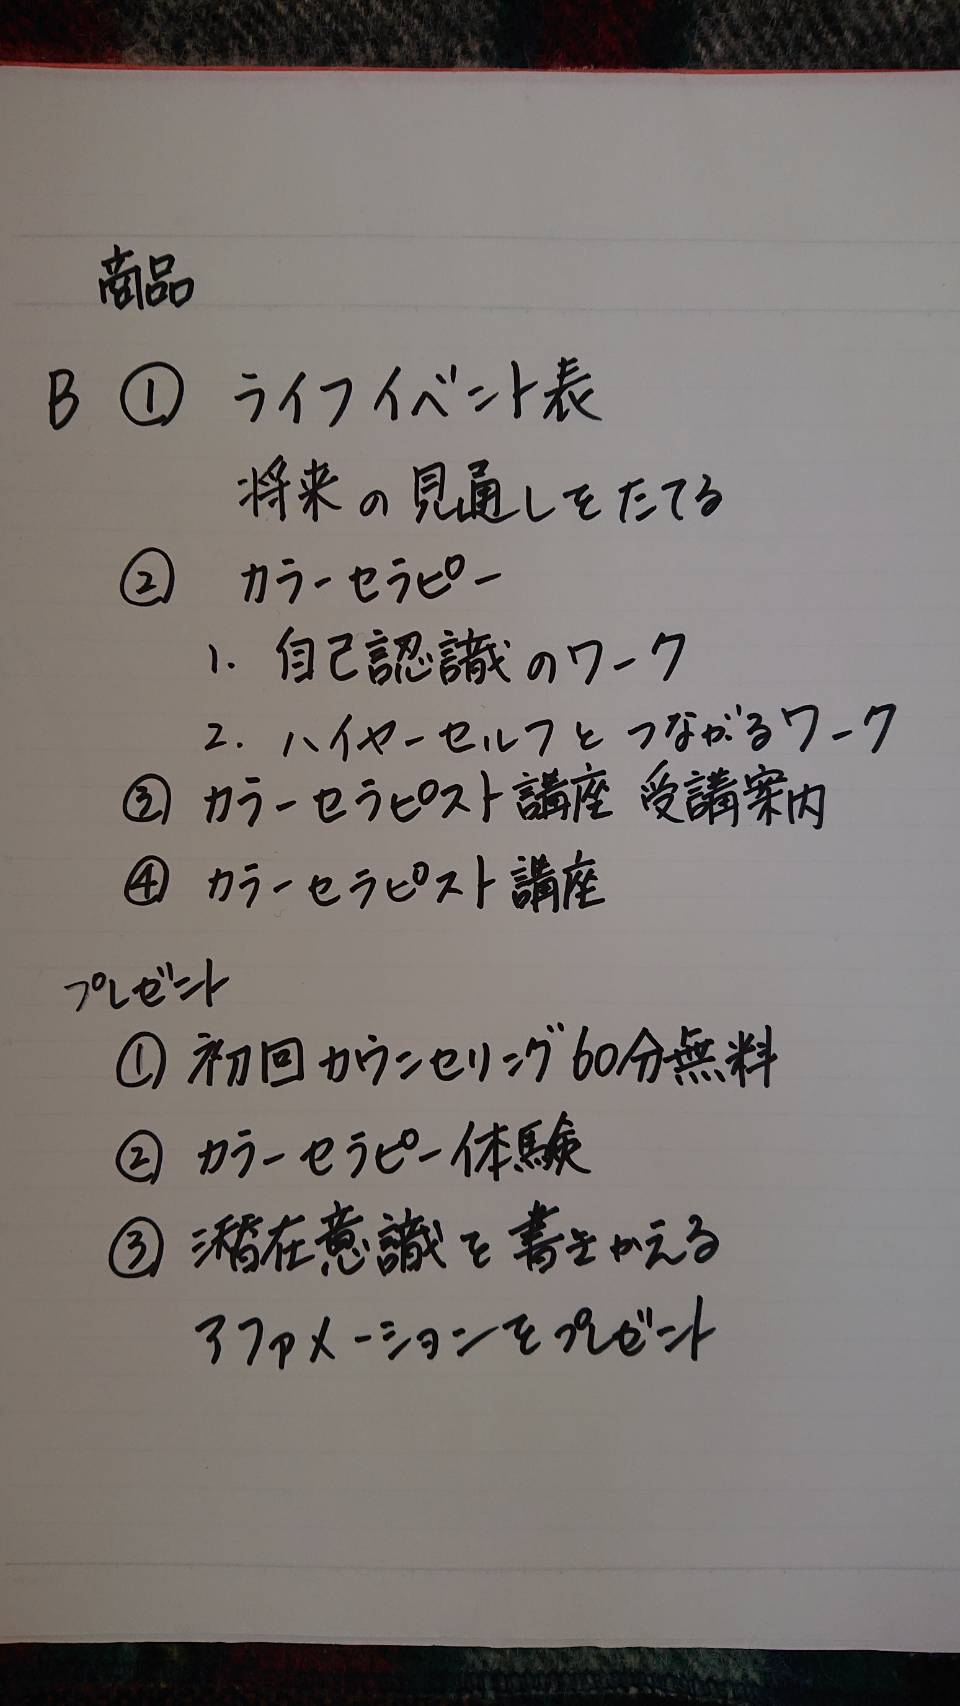 商品
B ① ライフイベント表
将来の見通しをたてる
② カラーセラピー
1. 自己認識のワーク
2. ハイヤーセルフとつながるワーク
③ カラーセラピスト講座 受講案内
④ カラーセラピスト講座
プレゼント
① 初回カウンセリング60分無料
② カラーセラピー体験
③ 潜在意識を書きかえる
アファメーションをプレゼント